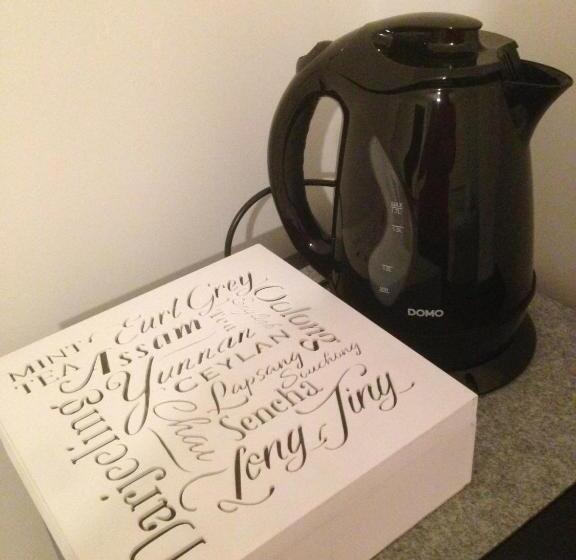 MINT TEA
Earl Grey
Oolong
Assam
Tea
English
Yunnan
CEYLAN
Lapsang Souchong
Chai
Sencha
Darjeeling
Long Jing
MAX
1.7L
DOMO